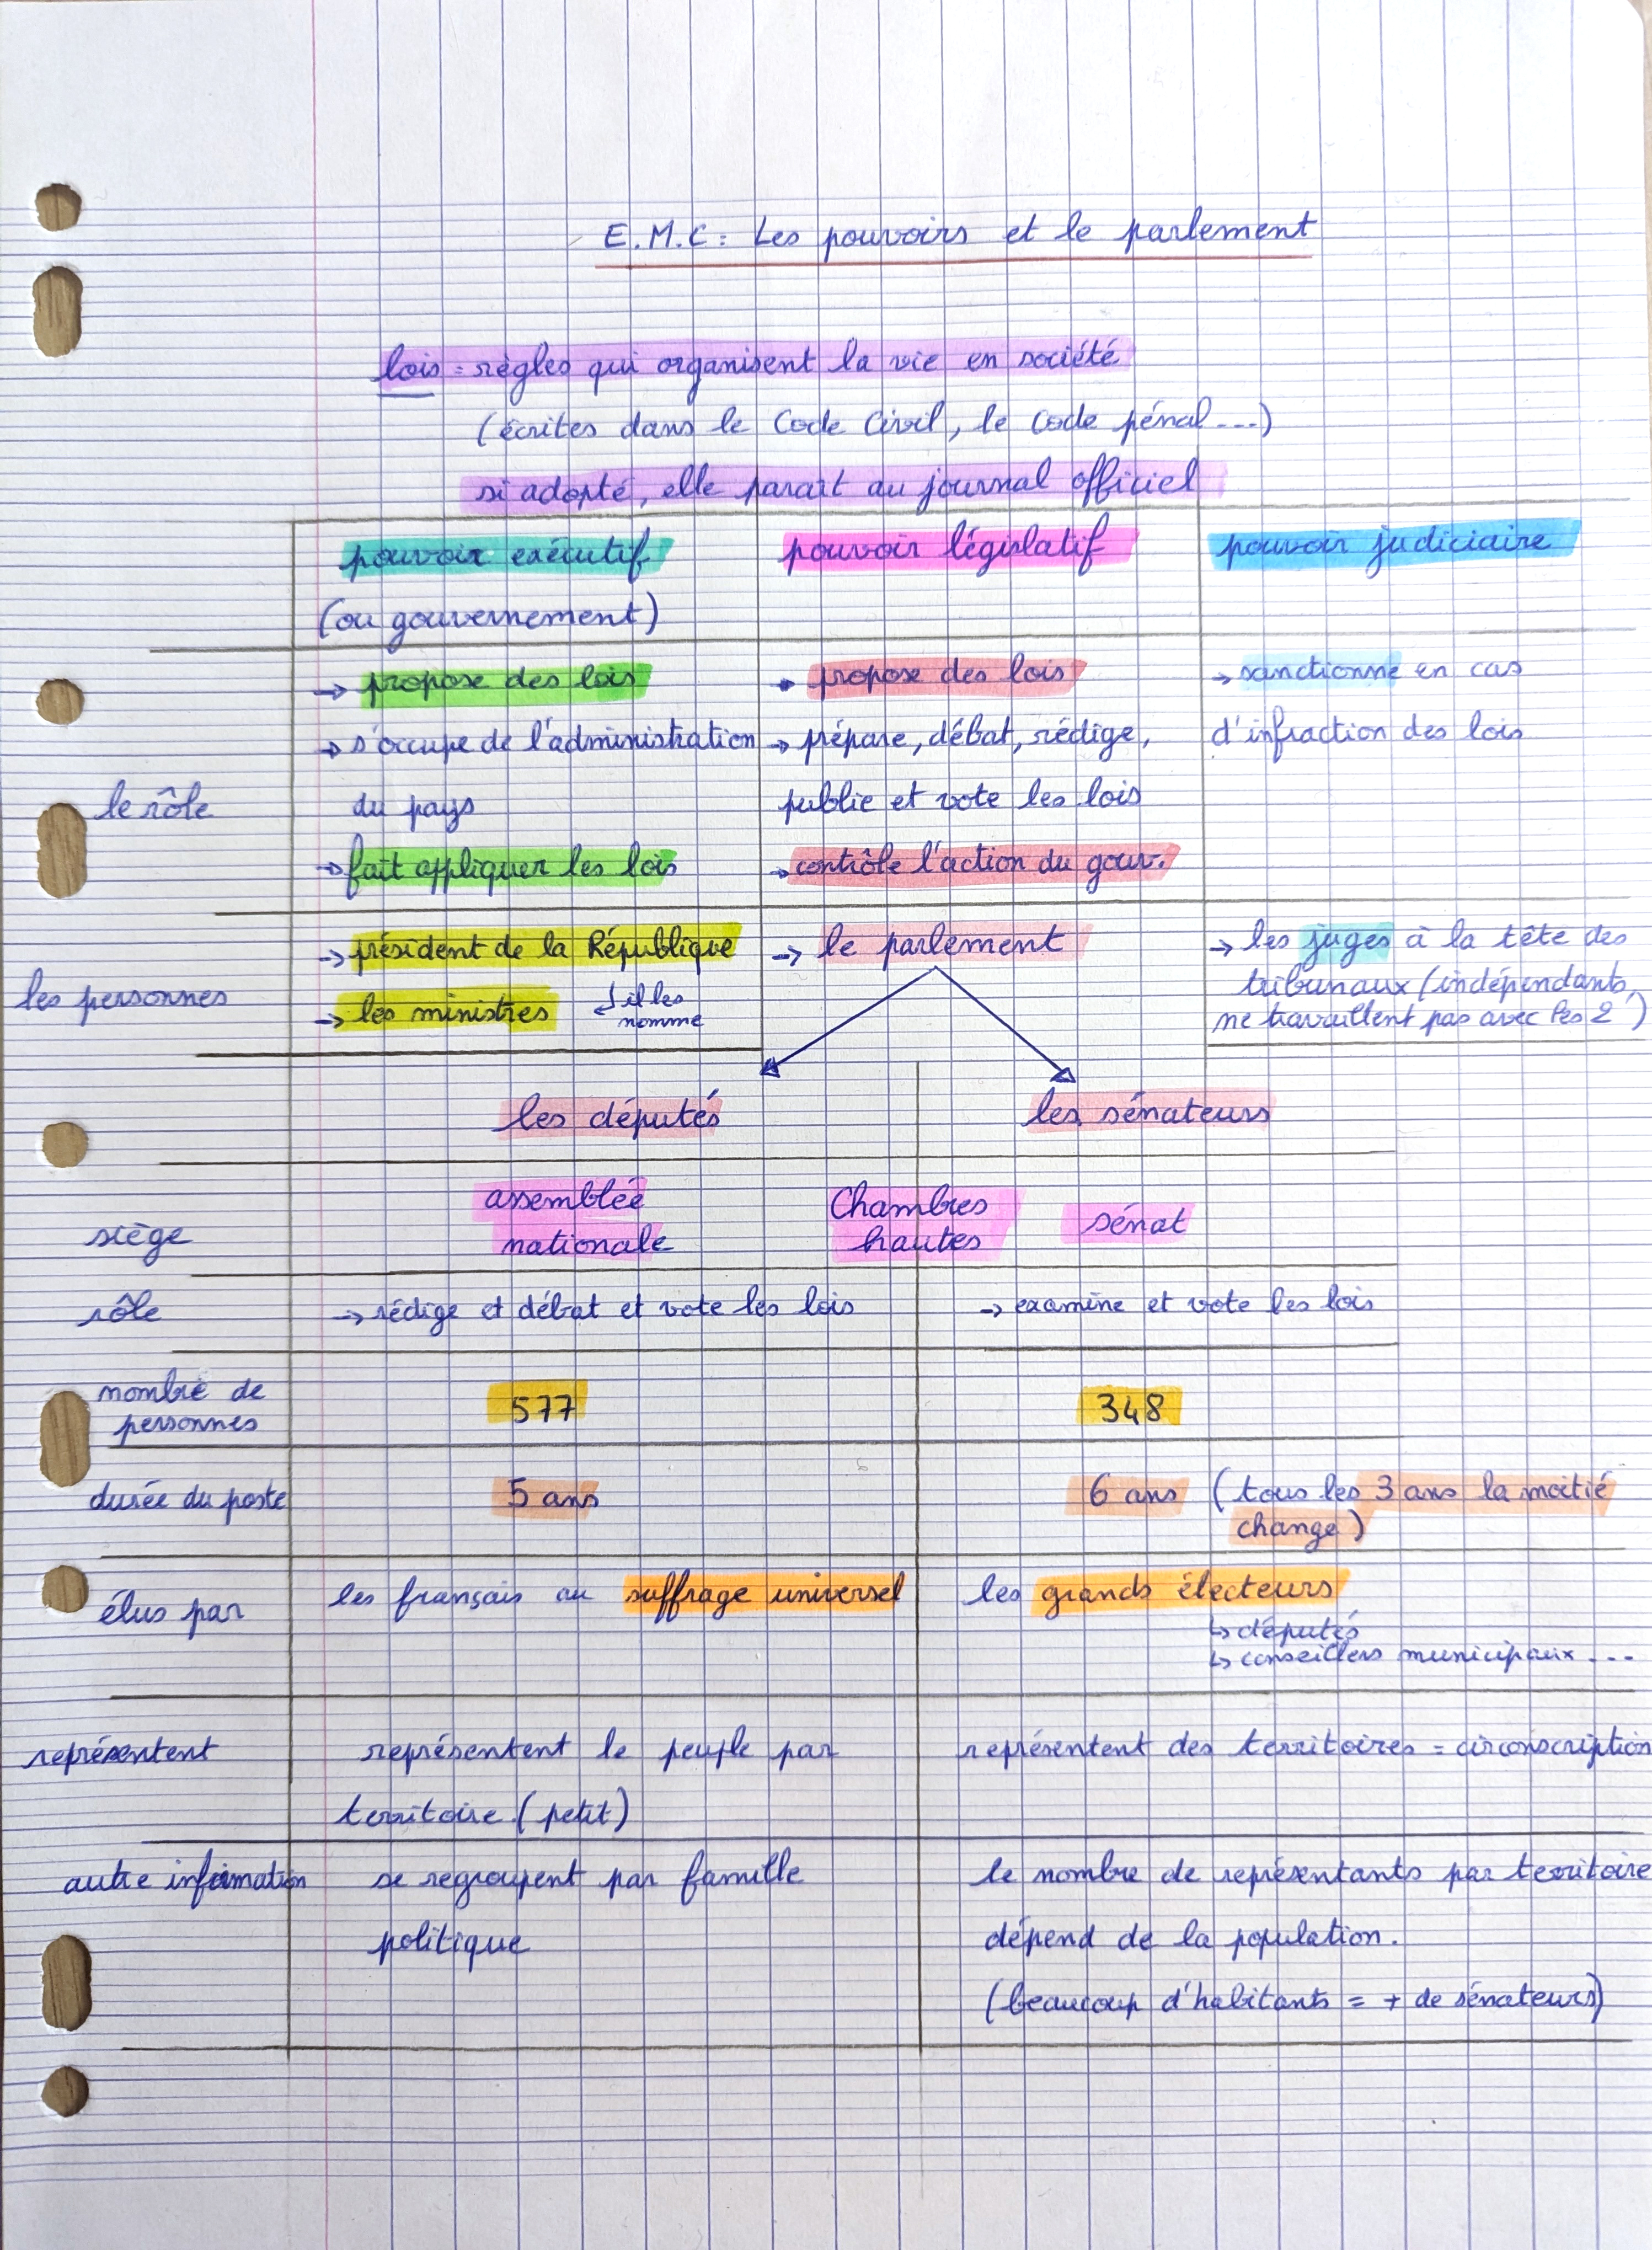 E.M.C : Les pouvoirs et le parlement
lois = règles qui organisent la vie en société
(écrites dans le Code Civil, le Code pénal ...)
si adopté, elle parait au journal officiel
pouvoir exécutif
(ou gouvernement)
pouvoir législatif
pouvoir judiciaire
le rôle
→ propose des lois
→ s'occupe de l'administration
du pays
→ fait appliquer les lois
→ propose des lois
→ prépare, débat, rédige,
publie et vote les lois
→ contrôle l'action du gouv.
→ sanctionne en cas
d'infraction des lois
les personnes
→ président de la République
→ les ministres
↲ il les
nomme
→ le parlement
→ les juges à la tête des
tribunaux (indépendants,
ne travaillent pas avec les 2)
les députés
les sénateurs
siège
assemblée
nationale
Chambres
hautes
sénat
rôle
→ rédige et débat et vote les lois
→ examine et vote les lois
nombre de
personnes
577
348
durée du poste
5 ans
6 ans (tous les 3 ans la moitié
change)
élus par
les français au suffrage universel
les grands électeurs
↳ députés
↳ conseillers municipaux ...
représentent
représentent le peuple par
territoire (petit)
représentent des territoires = circonscription
autre information
se regroupent par famille
politique
le nombre de représentants par territoire
dépend de la population.
(beaucoup d'habitants = + de sénateurs)